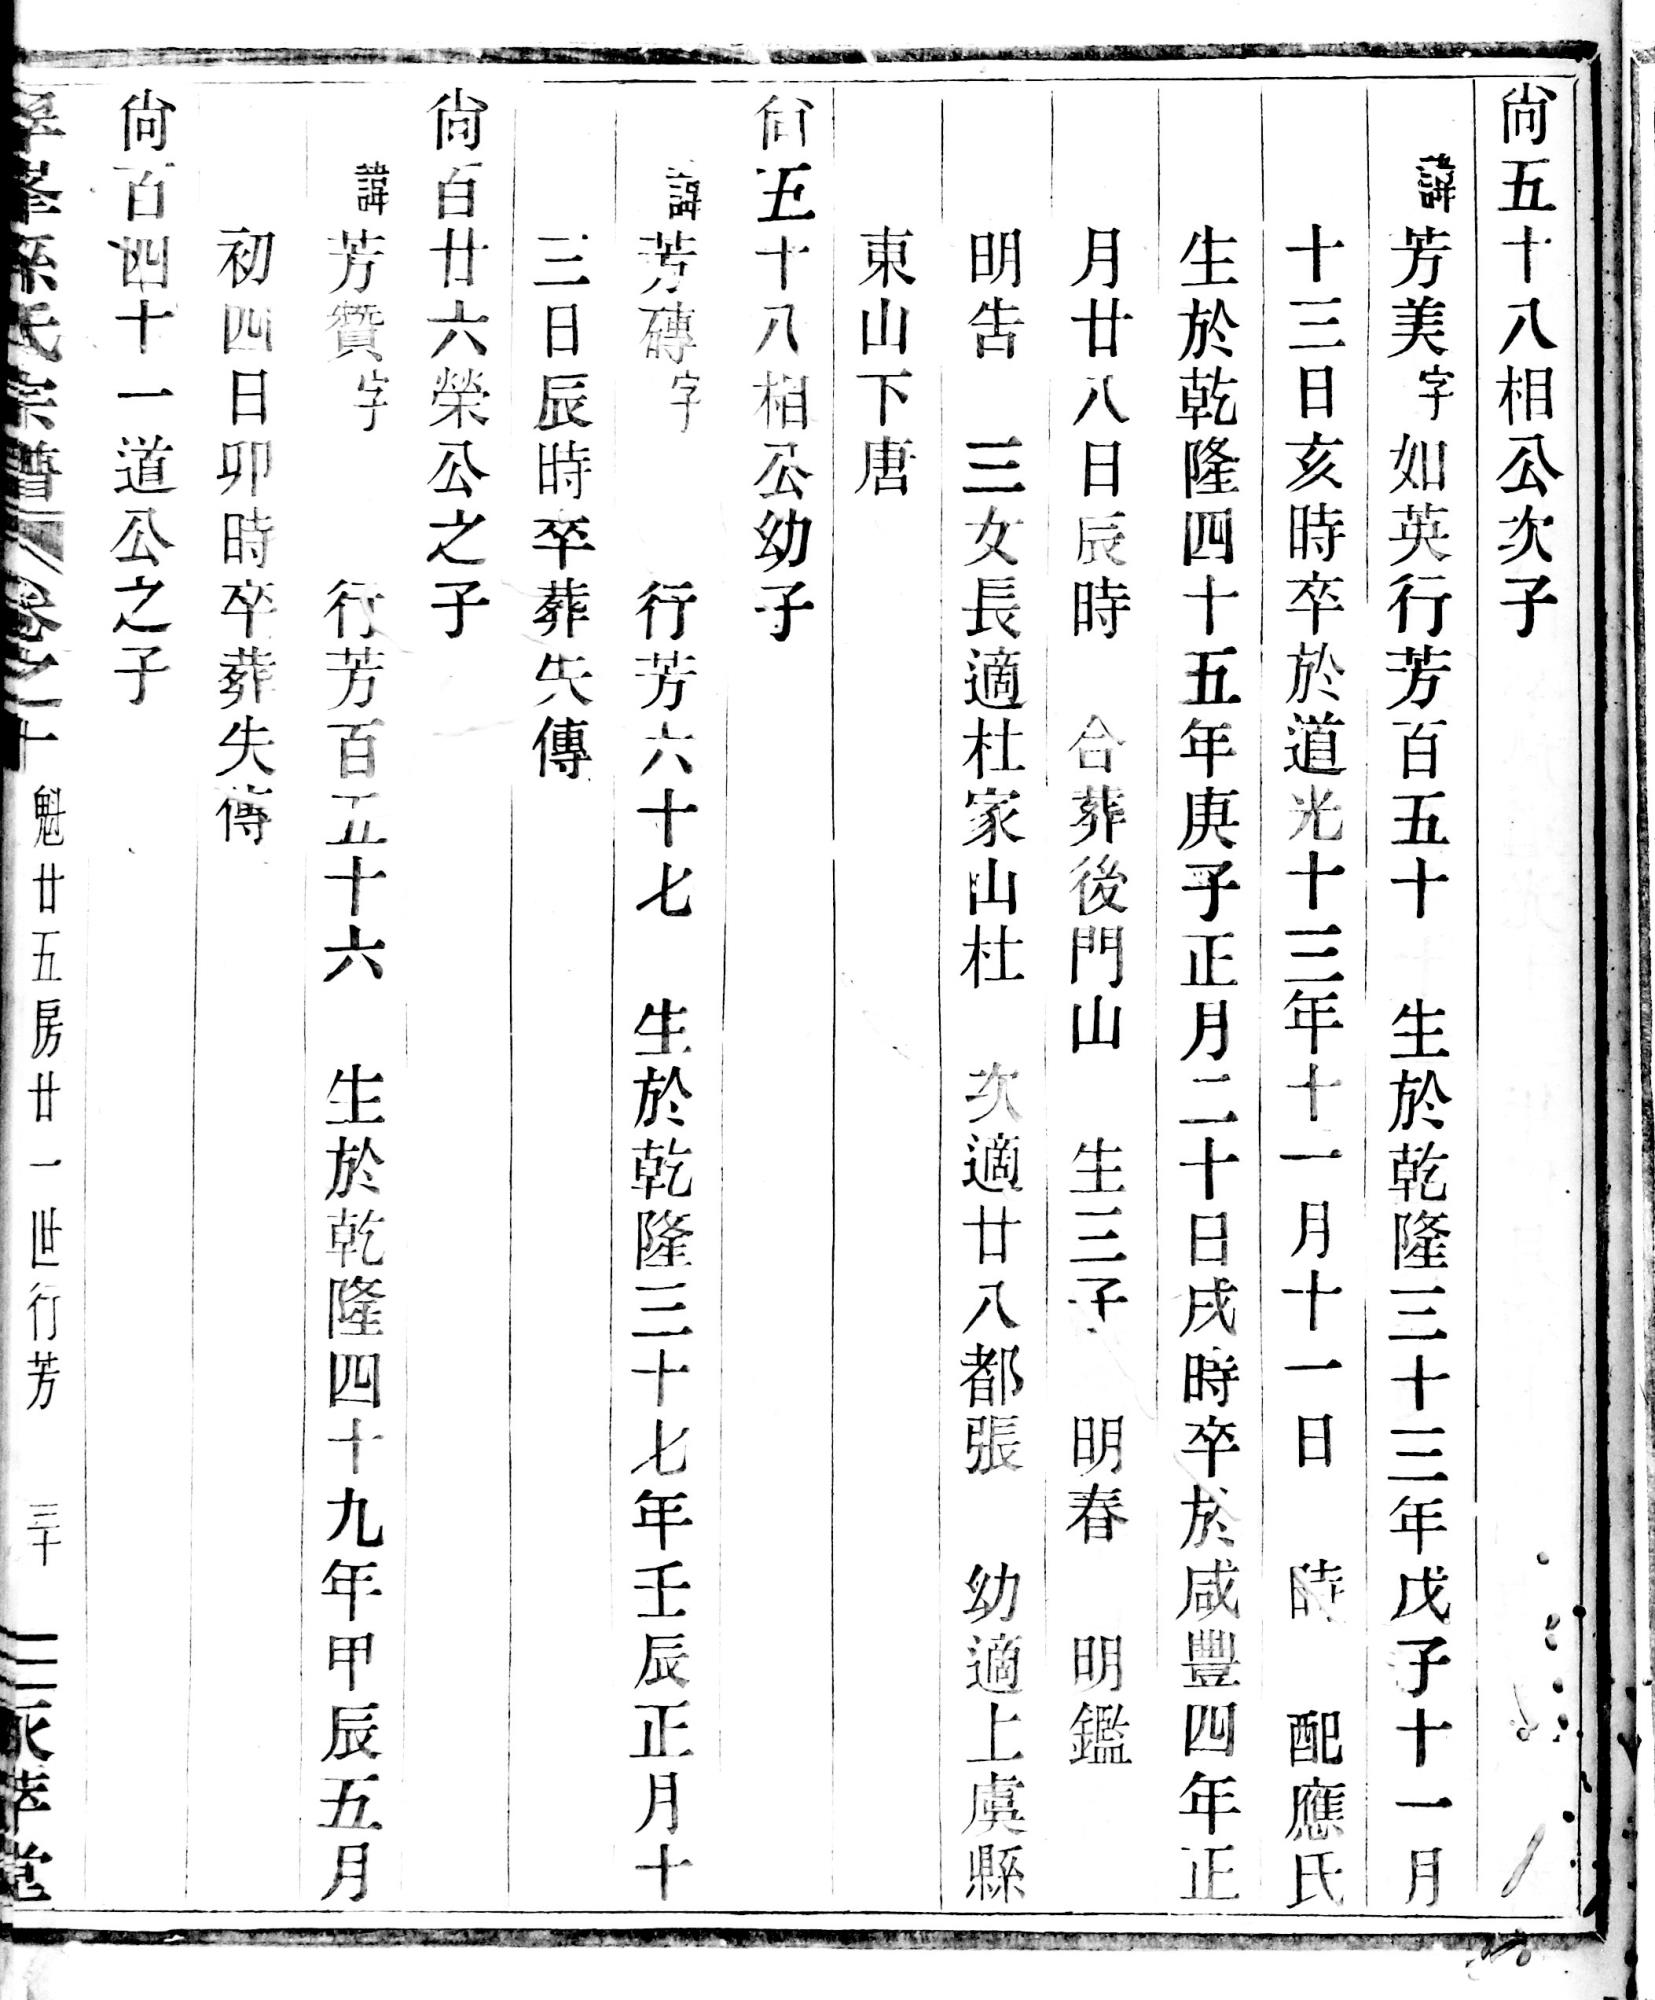 尙五十八相公次子
諱芳美字如英行芳百五十　生於乾隆三十三年戊子十一月
十三日亥時卒於道光十三年十一月十一日　時　配應氏
生於乾隆四十五年庚子正月二十日戌時卒於咸豐四年正
月廿八日辰時　合葬後門山　生三子　明春　明鑑
明告　三女長適杜家山杜　次適廿八都張　幼適上虞縣
東山下唐
尙五十八相公幼子
諱芳磚字　　行芳六十七　生於乾隆三十七年壬辰正月十
三日辰時卒葬失傳
尙百廿六榮公之子
諱芳贊字　　行芳百五十六　生於乾隆四十九年甲辰五月
初四日卯時卒葬失傳
尙百四十一道公之子
峯孫氏宗譜　卷之十　魁廿五房廿一世行芳　三十　萃堂